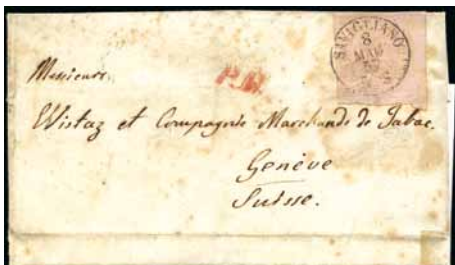 SAVIGLIANO
8
P.D.
Messieurs.
Wistaz et Compagnie Marchands de Tabac.
Genève
Suisse.